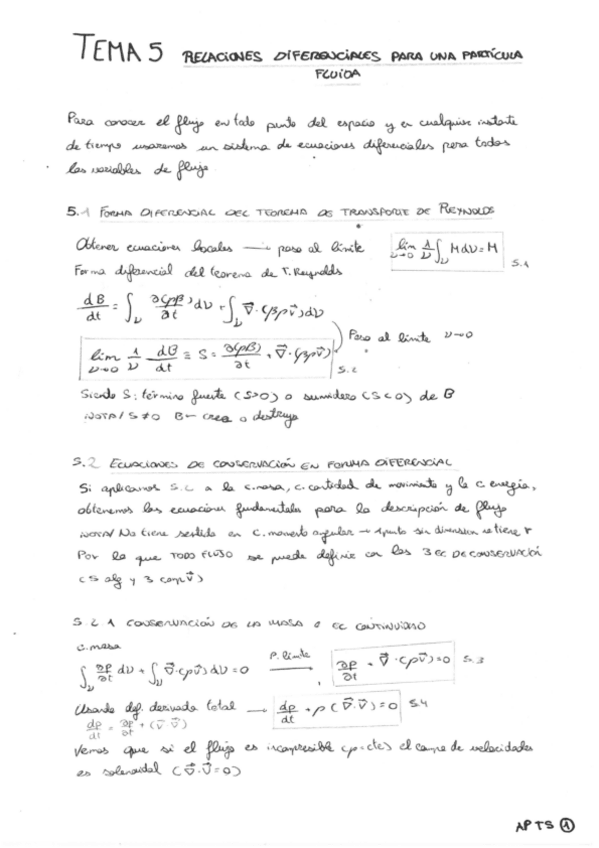 TEMA 5 RELACIONES DIFERENCIALES PARA UNA PARTÍCULA
FLUIDA
Para conocer el flujo en todo punto del espacio y en cualquier instante
de tiempo usaremos un sistema de ecuaciones diferenciales para todas
las variables de flujo
5.1 FORMA DIFERENCIAL DEL TEOREMA DE TRANSPORTE DE REYNOLDS
Obtener ecuaciones locales → paso al límite lim ν→0 1/ν ∫ν M dν = M 5.1
Forma diferencial del teorema de T. Reynolds
dB/dt = ∫ν ∂(ρβ)/∂t dν + ∫ν ∇⃗·(βρv⃗)dν
Paso al límite ν→0
lim ν→0 1/ν dB/dt ≡ S = ∂(ρβ)/∂t + ∇⃗·(βρv⃗) 5.2
Siendo S: término fuente (S>0) o sumidero (S<0) de B
NOTA/ S≠0 B- crea o destruye
5.2 ECUACIONES DE CONSERVACIÓN EN FORMA DIFERENCIAL
Si aplicamos 5.2 a la c.masa, c.cantidad de movimiento y la c. energía,
obtenemos las ecuaciones fundamentales para la descripción de flujo
NOTA/ No tiene sentido en C. momento angular → punto sin dimension tiene r
Por lo que TODO FLUJO se puede definir con las 3 EC DE CONSERVACIÓN
(5 alg y 3 comp v⃗)
5.2.1 CONSERVACIÓN DE LA MASA o EC CONTINUIDAD
C. masa
∫ν ∂ρ/∂t dν + ∫ν ∇⃗·(ρv⃗)dν = 0 P. límite → ∂ρ/∂t + ∇⃗·(ρv⃗)=0 5.3
Usando def. derivada total → dρ/dt + ρ(∇⃗·v⃗)=0 5.4
dρ/dt = ∂ρ/∂t + (v⃗·∇⃗)
Vemos que si el flujo es incompresible (ρ=cte) el campo de velocidades
es solenoidal (∇⃗·v⃗=0)
APTS 1